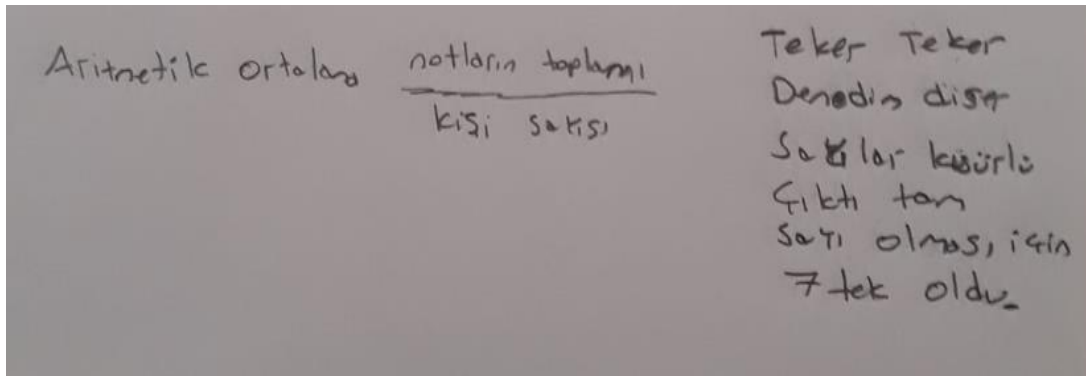 Aritmetik ortalama notların toplamı
kişi sayısı
Teker Teker
Denedim diğer
Sayılar küsürlü
Çıktı tam
Sayı olması için
7 tek oldu.